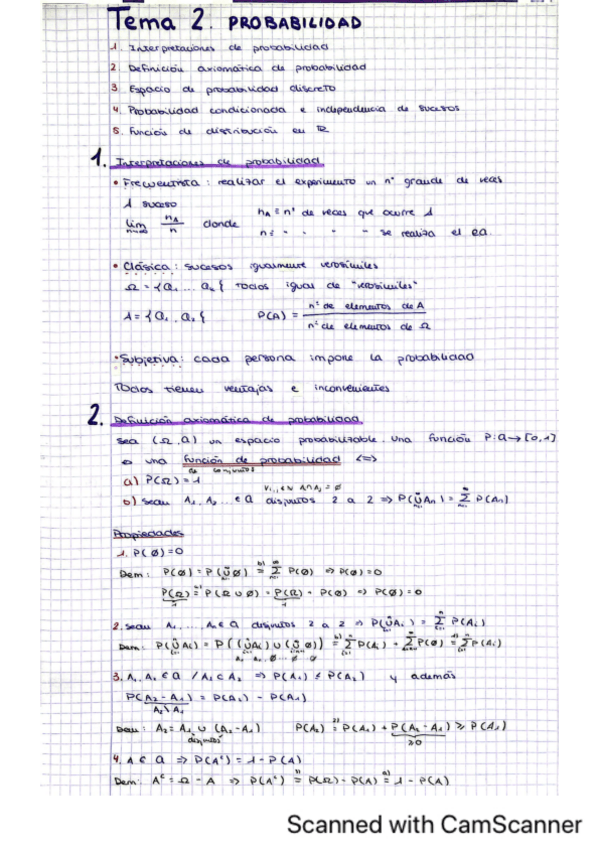 Tema 2. PROBABILIDAD
1. Interpretaciones de probabilidad
2. Definición axiomática de probabilidad
3. Espacio de probabilidad discreto
4. Probabilidad condicionada e independencia de sucesos
5. Función de distribución en ℝ
1. Interpretaciones de probabilidad
• Frecuentista: realizar el experimento un nº grande de veces
A suceso
lim n→∞ nA/n donde nA ≡ nº de veces que ocurre A
n ≡ " " " se realiza el ea.
• Clásica: sucesos igualmente verosímiles
Ω = {a₁ ... aₖ} todos igual de "verosímiles"
A = {a₁, a₂} P(A) = nº de elementos de A / nº de elementos de Ω
• Subjetiva: cada persona impone la probabilidad
Todos tienen ventajas e inconvenientes
2. Definición axiomática de probabilidad
Sea (Ω, a) un espacio probabilizable. Una función P: a → [0,1]
es una función de probabilidad <=>
de conjuntos
a) P(Ω) = 1
∀i,j ∈ ℕ Ai ∩ Aj = ∅
b) Sean A₁, A₂ ... ∈ a disjuntos 2 a 2 => P(∪ An) = Σ P(An)
Propiedades
1. P(∅) = 0
Dem: P(∅) = P(∪ ∅) =b) Σ P(∅) => P(∅) = 0
P(Ω) = P(Ω ∪ ∅) = P(Ω) + P(∅) => P(∅) = 0
1 1
2. Sean A₁, ... An ∈ a disjuntos 2 a 2 => P(∪ Ai) = Σ P(Ai)
Dem: P(∪ Ai) = P((∪ Ai) ∪ (∪ ∅)) =b) Σ P(Ai) + Σ P(∅) =1) Σ P(Ai)
3. A₁, A₂ ∈ a / A₁ ⊂ A₂ => P(A₁) ≤ P(A₂) y además
P(A₂ - A₁) = P(A₂) - P(A₁)
A₂ \ A₁
Dem: A₂ = A₁ ∪ (A₂ - A₁) P(A₂) =2) P(A₁) + P(A₂ - A₁) ≥ P(A₁)
disjuntos ≥0
4. A ∈ a => P(Aᶜ) = 1 - P(A)
Dem: Aᶜ = Ω - A => P(Aᶜ) = P(Ω) - P(A) =a) 1 - P(A)
Scanned with CamScanner